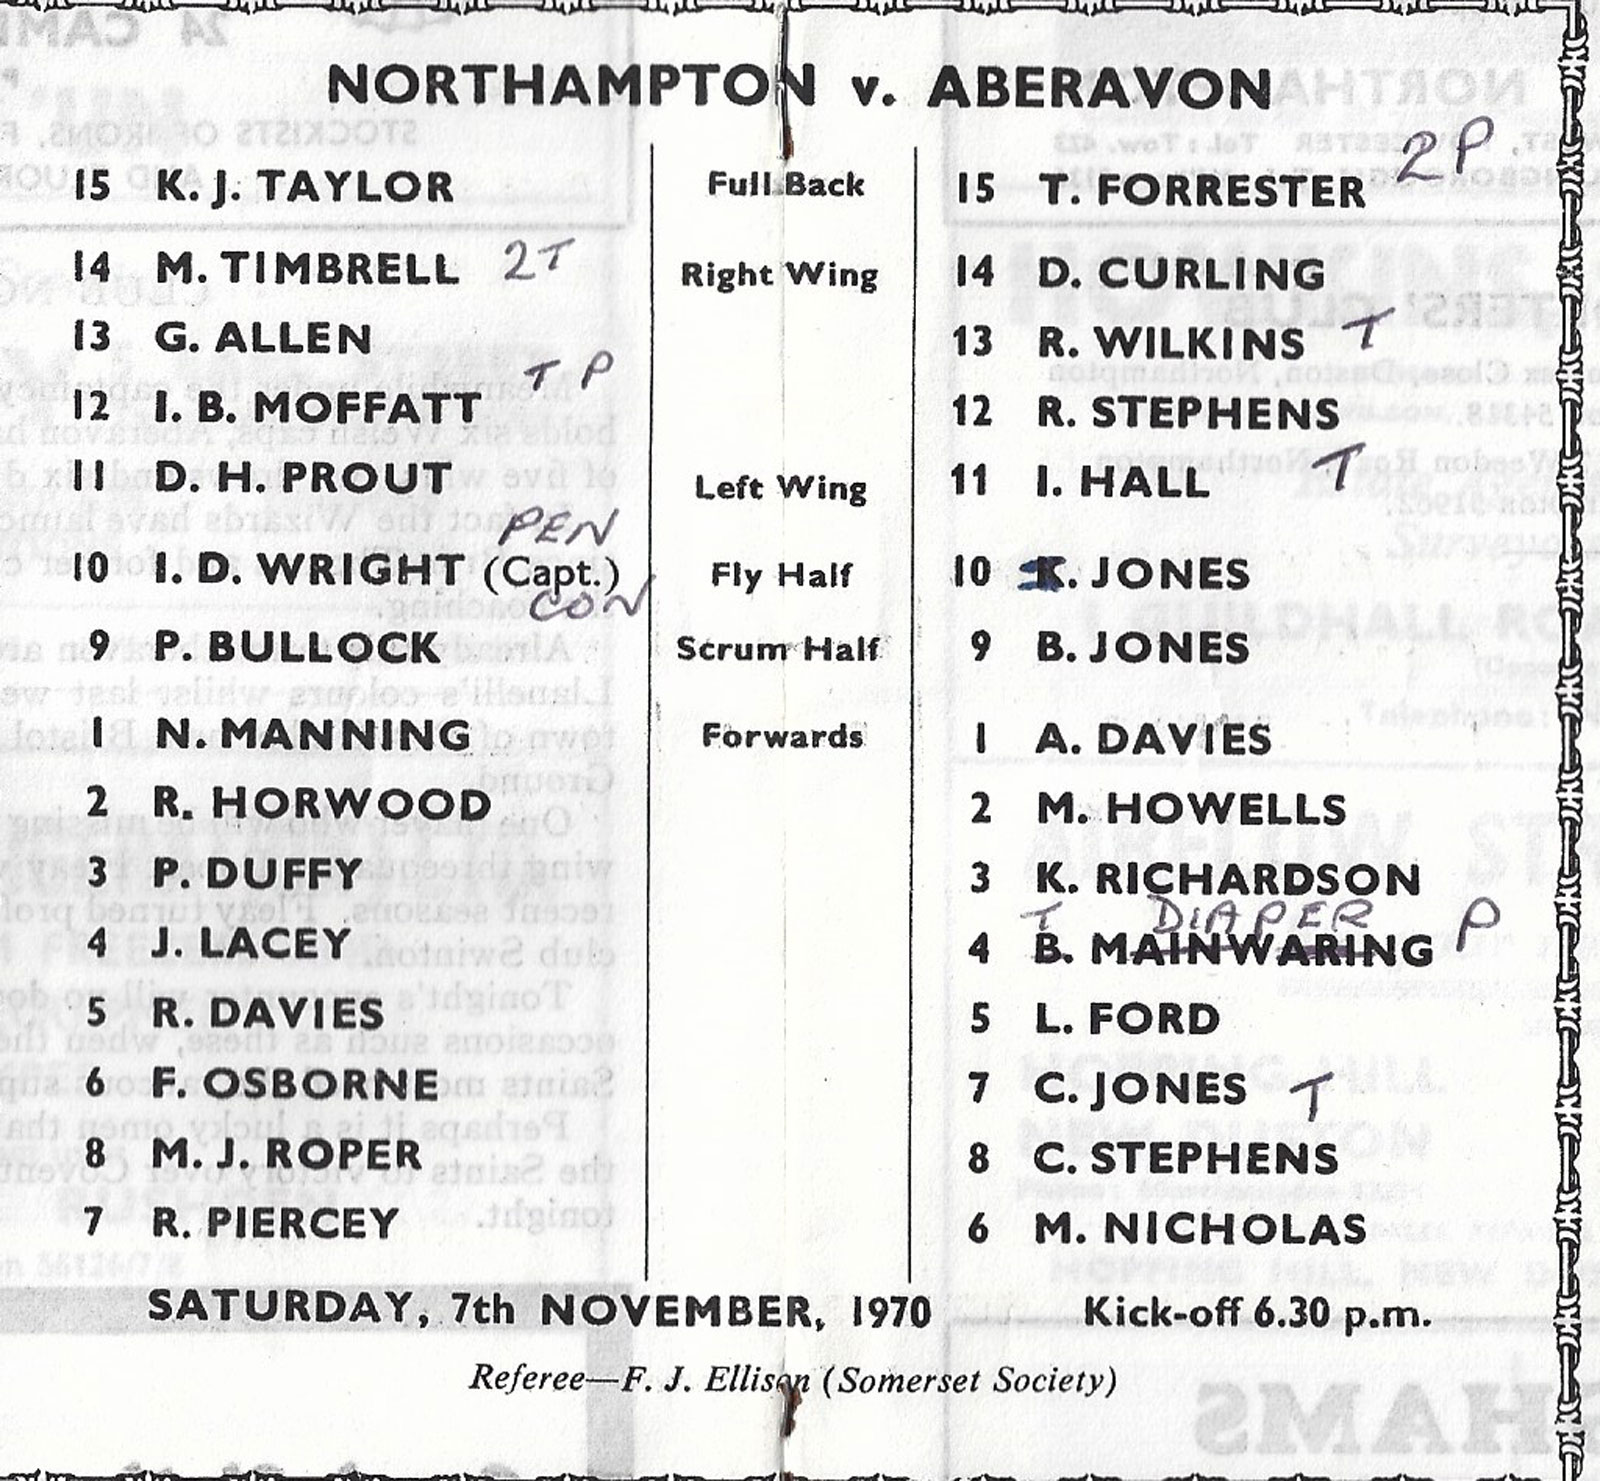 NORTHAMPTON v. ABERAVON
2P
15 K. J. TAYLOR Full Back 15 T. FORRESTER
14 M. TIMBRELL 2T Right Wing 14 D. CURLING
13 G. ALLEN 13 R. WILKINS T
T P
12 I. B. MOFFATT 12 R. STEPHENS
11 D. H. PROUT Left Wing 11 I. HALL T
PEN
10 I. D. WRIGHT (Capt.) Fly Half 10 K. JONES
CON
9 P. BULLOCK Scrum Half 9 B. JONES
1 N. MANNING Forwards 1 A. DAVIES
2 R. HORWOOD 2 M. HOWELLS
3 P. DUFFY 3 K. RICHARDSON
T DIAPER P
4 J. LACEY 4 B. MAINWARING
5 R. DAVIES 5 L. FORD
6 F. OSBORNE 7 C. JONES T
8 M. J. ROPER 8 C. STEPHENS
7 R. PIERCEY 6 M. NICHOLAS
SATURDAY, 7th NOVEMBER, 1970 Kick-off 6.30 p.m.
Referee—F. J. Ellison (Somerset Society)